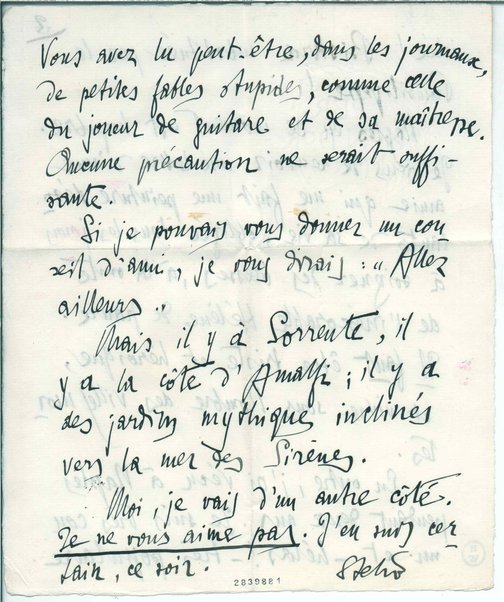 Vous avez lu peut-être, dans les journaux,
de petites fables stupides, comme celle
du joueur de guitare et de sa maîtresse.
Aucune précaution ne serait suffi-
sante
Si je pouvais vous donner un con
seil d'ami, je vous dirais : "Allez
ailleurs"
Mais il y a Sorrente, il
y a la côte d'Amalfi; il y a
des jardins mythiques inclinés
vers la mer des Sirènes.
Moi, je vais d'un autre côté.
Je ne vous aime pas. J'en suis cer
tain, ce soir.
2839881